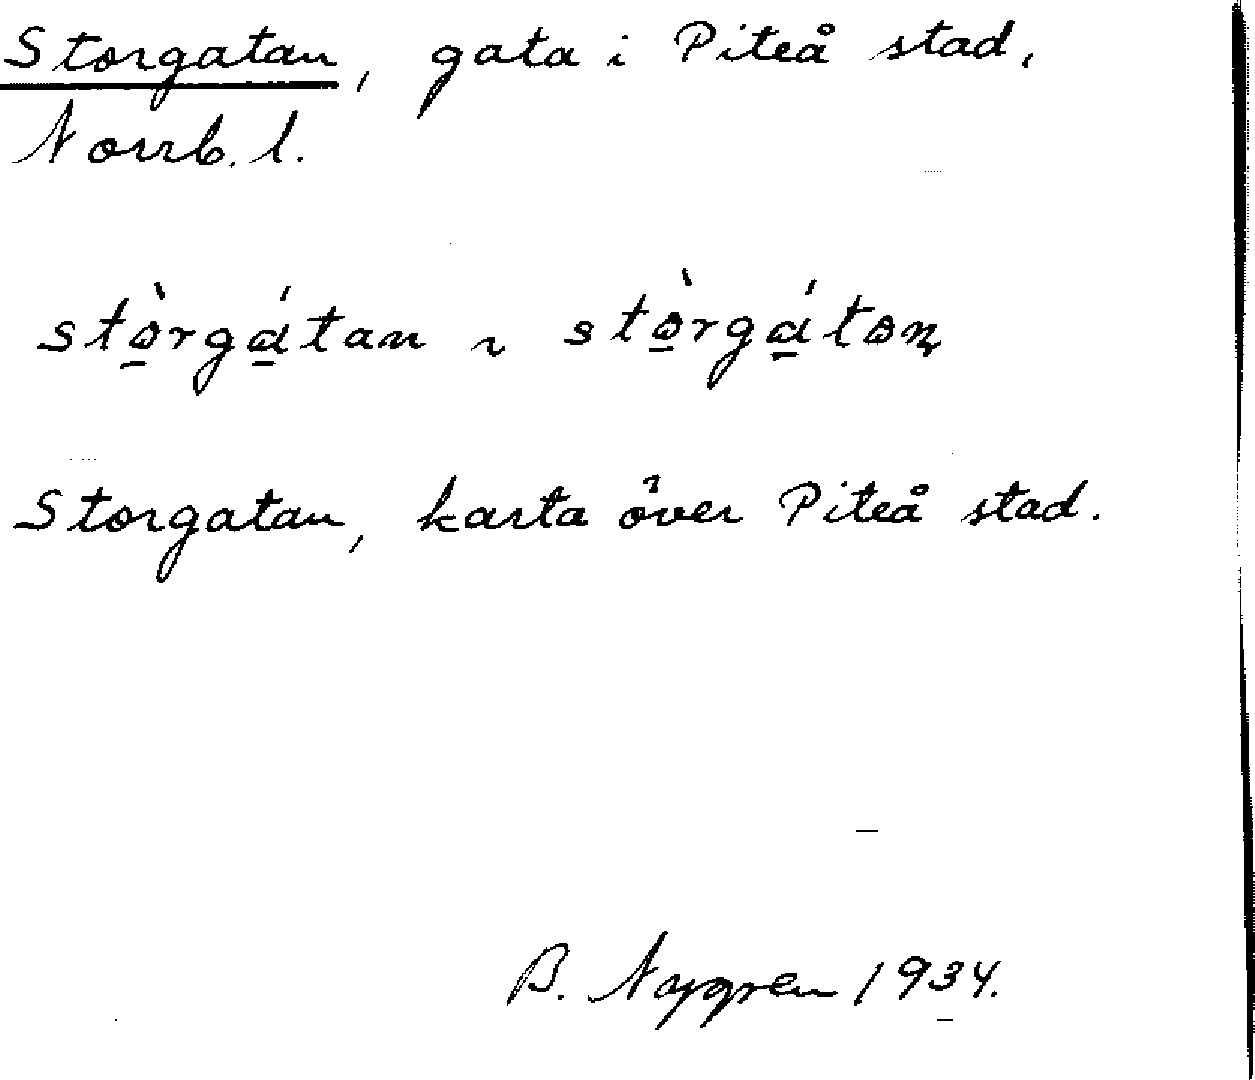 Storgatan, gata i Piteå stad,
Norrb. l.
stò̱rgá̱tan ~ stò̱rgá̱ton̥
Storgatan, karta över Piteå stad.
B. Nygren 1934.